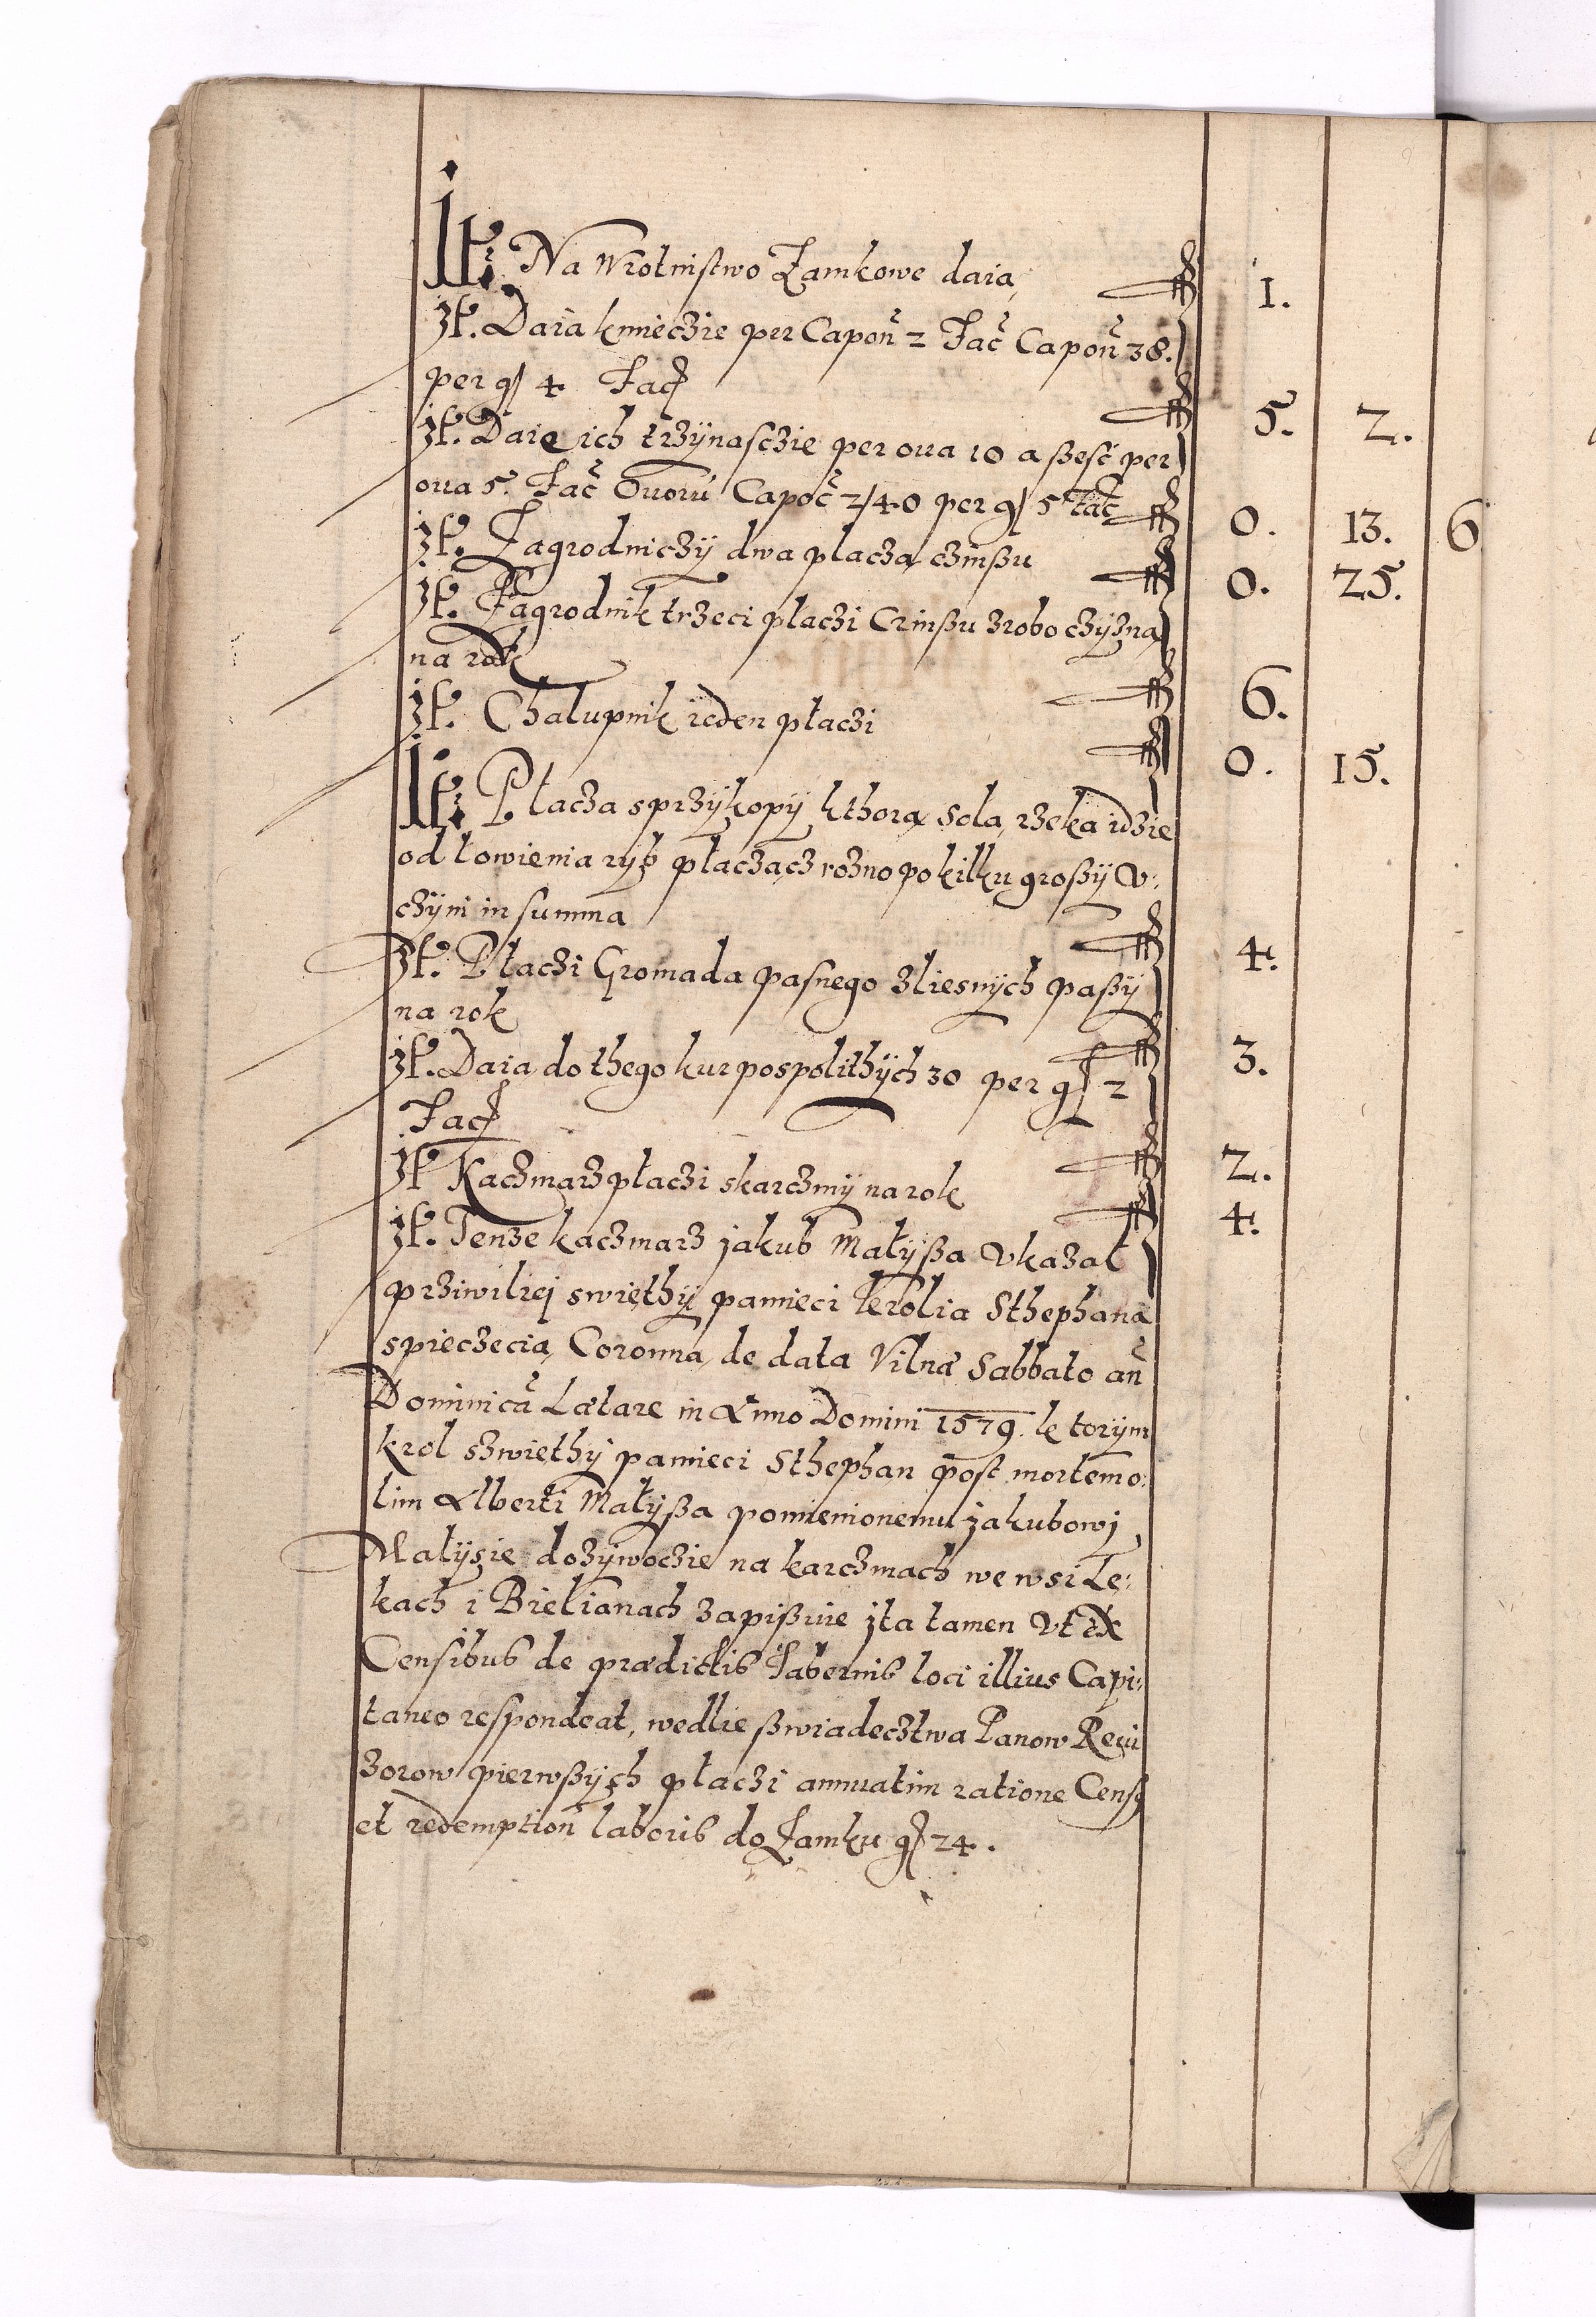 It: Na Wrotnistwo Zamkowe daią 1.
It. Daią kmieczie per Capoñ 2 Fac̃ Capoñ 38.
per g 4 Fac 5. 2.
It. Daię ich trzÿnasczie per oua 10 a ßesć per
oua 5. Fac̃ Ouorũ Capoc̃ 2/40 per g 5 fac̃ 0. 13. 6
It. Zagrodniczÿ dwa płaczą czinßu 0. 25.
It. Zagrodnik trzeci płaczi Czinßu zroboczÿzną
na rok 6.
It. Chałupnik ieden płaczi 0. 15.
It: Płaczą sprzÿkopÿ kthorą Sola rzeka idzie
od łowienia ryb płacząch rozno po kilku großÿ v:
czÿni in summa 4.
It. Płaczi Gromada pasnego zliesnÿch paßÿ
na rok 3.
It. Daią do thego kur pospolithÿch 30 per g 2
Fac 2.
It Kaczmarz płaczi skarczmÿ na rok 4.
It. Tenze kaczmarz jakub Małÿßa vkazał
prziwiliej swięthÿ pamieci krolia Sthephana
spieczęcią Coronną de data Vilnæ Sabbato añ
Dominicã Lætare in Anno Domini 1579. ktorÿm
krol szwiethÿ pamieci Sthephan post mortem o:
lim Alberti Małÿßa pomienionemu jakubowj
Małÿsie dozÿwoczie na karczmach we wsi Łę:
kach i Bielianach zapißuie jta tamen vt ex
Censibus de prædictis Tabernis loci illius Capi:
taneo respondeat, wedlie ßwiadecztwa Panow Rewi
zorow pierwßÿch płaczi annuatim ratione Cens
et redemption̄ laboris do Zamku g 24.